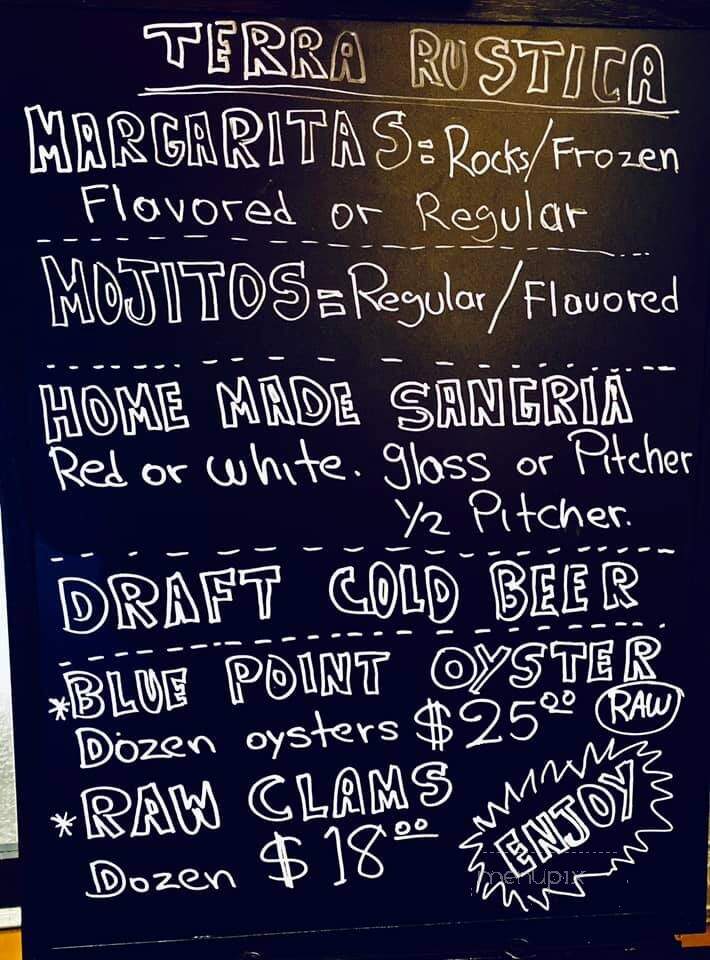 TERRA RUSTICA
MARGARITAS = Rocks/Frozen
Flavored or Regular
MOJITOS = Regular/Flavored
HOME MADE SANGRIA
Red or white. glass or Pitcher
1/2 Pitcher.
DRAFT COLD BEER
*BLUE POINT OYSTER
Dozen oysters $25.00 RAW
*RAW CLAMS
Dozen $18.00
ENJOY
menupix